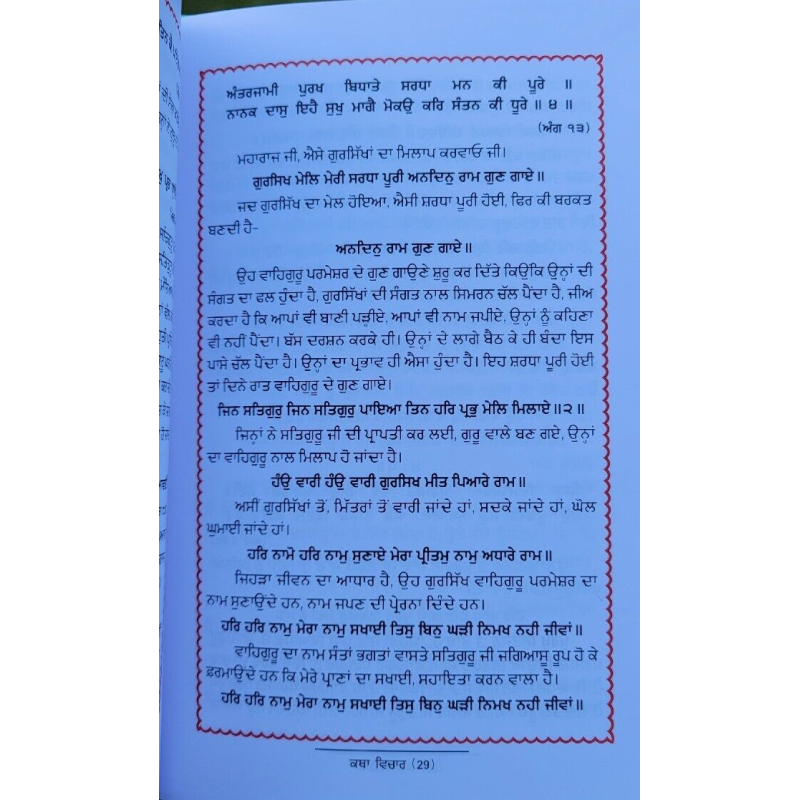 ਅੰਤਰਜਾਮੀ ਪੁਰਖ ਬਿਧਾਤੇ ਸਰਧਾ ਮਨ ਕੀ ਪੂਰੇ ॥
ਨਾਨਕ ਦਾਸੁ ਇਹੈ ਸੁਖੁ ਮਾਗੈ ਮੋਕਉ ਕਰਿ ਸੰਤਨ ਕੀ ਧੂਰੇ ॥ ੪ ॥
(ਅੰਗ ੧੩)
ਮਹਾਰਾਜ ਜੀ, ਐਸੇ ਗੁਰਸਿੱਖਾਂ ਦਾ ਮਿਲਾਪ ਕਰਵਾਓ ਜੀ।
ਗੁਰਸਿਖ ਮੇਲਿ ਮੇਰੀ ਸਰਧਾ ਪੂਰੀ ਅਨਦਿਨੁ ਰਾਮ ਗੁਣ ਗਾਏ॥
ਜਦ ਗੁਰਸਿੱਖ ਦਾ ਮੇਲ ਹੋਇਆ, ਐਸੀ ਸ਼ਰਧਾ ਪੂਰੀ ਹੋਈ, ਫਿਰ ਕੀ ਬਰਕਤ
ਬਣਦੀ ਹੈ-
ਅਨਦਿਨੁ ਰਾਮ ਗੁਣ ਗਾਏ॥
ਉਹ ਵਾਹਿਗੁਰੂ ਪਰਮੇਸ਼ਰ ਦੇ ਗੁਣ ਗਾਉਣੇ ਸ਼ੁਰੂ ਕਰ ਦਿੱਤੇ ਕਿਉਂਕਿ ਉਨ੍ਹਾਂ ਦੀ
ਸੰਗਤ ਦਾ ਫਲ ਹੁੰਦਾ ਹੈ, ਗੁਰਸਿੱਖਾਂ ਦੀ ਸੰਗਤ ਨਾਲ ਸਿਮਰਨ ਚੱਲ ਪੈਂਦਾ ਹੈ, ਜੀਅ
ਕਰਦਾ ਹੈ ਕਿ ਆਪਾਂ ਵੀ ਬਾਣੀ ਪੜ੍ਹੀਏ, ਆਪਾਂ ਵੀ ਨਾਮ ਜਪੀਏ, ਉਨ੍ਹਾਂ ਨੂੰ ਕਹਿਣਾ
ਵੀ ਨਹੀਂ ਪੈਂਦਾ। ਬੱਸ ਦਰਸ਼ਨ ਕਰਕੇ ਹੀ। ਉਨ੍ਹਾਂ ਦੇ ਲਾਗੇ ਬੈਠ ਕੇ ਹੀ ਬੰਦਾ ਇਸ
ਪਾਸੇ ਚੱਲ ਪੈਂਦਾ ਹੈ। ਉਨ੍ਹਾਂ ਦਾ ਪ੍ਰਭਾਵ ਹੀ ਐਸਾ ਹੁੰਦਾ ਹੈ। ਇਹ ਸ਼ਰਧਾ ਪੂਰੀ ਹੋਈ
ਤਾਂ ਦਿਨੇ ਰਾਤ ਵਾਹਿਗੁਰੂ ਦੇ ਗੁਣ ਗਾਏ।
ਜਿਨ ਸਤਿਗੁਰੁ ਜਿਨ ਸਤਿਗੁਰੁ ਪਾਇਆ ਤਿਨ ਹਰਿ ਪ੍ਰਭੁ ਮੇਲਿ ਮਿਲਾਏ॥੨॥
ਜਿਨ੍ਹਾਂ ਨੇ ਸਤਿਗੁਰੂ ਜੀ ਦੀ ਪ੍ਰਾਪਤੀ ਕਰ ਲਈ, ਗੁਰੂ ਵਾਲੇ ਬਣ ਗਏ, ਉਨ੍ਹਾਂ
ਦਾ ਵਾਹਿਗੁਰੂ ਨਾਲ ਮਿਲਾਪ ਹੋ ਜਾਂਦਾ ਹੈ।
ਹੰਉ ਵਾਰੀ ਹੰਉ ਵਾਰੀ ਗੁਰਸਿਖ ਮੀਤ ਪਿਆਰੇ ਰਾਮ॥
ਅਸੀਂ ਗੁਰਸਿੱਖਾਂ ਤੋਂ, ਮਿੱਤਰਾਂ ਤੋਂ ਵਾਰੀ ਜਾਂਦੇ ਹਾਂ, ਸਦਕੇ ਜਾਂਦੇ ਹਾਂ, ਘੋਲ
ਘੁਮਾਈ ਜਾਂਦੇ ਹਾਂ।
ਹਰਿ ਨਾਮੋ ਹਰਿ ਨਾਮੁ ਸੁਣਾਏ ਮੇਰਾ ਪ੍ਰੀਤਮੁ ਨਾਮੁ ਅਧਾਰੇ ਰਾਮ॥
ਜਿਹੜਾ ਜੀਵਨ ਦਾ ਆਧਾਰ ਹੈ, ਉਹ ਗੁਰਸਿੱਖ ਵਾਹਿਗੁਰੂ ਪਰਮੇਸ਼ਰ ਦਾ
ਨਾਮ ਸੁਣਾਉਂਦੇ ਹਨ, ਨਾਮ ਜਪਣ ਦੀ ਪ੍ਰੇਰਨਾ ਦਿੰਦੇ ਹਨ।
ਹਰਿ ਹਰਿ ਨਾਮੁ ਮੇਰਾ ਨਾਮੁ ਸਖਾਈ ਤਿਸੁ ਬਿਨੁ ਘੜੀ ਨਿਮਖ ਨਹੀ ਜੀਵਾਂ॥
ਵਾਹਿਗੁਰੂ ਦਾ ਨਾਮ ਸੰਤਾਂ ਭਗਤਾਂ ਵਾਸਤੇ ਸਤਿਗੁਰੂ ਜੀ ਜਗਿਆਸੂ ਰੂਪ ਹੋ ਕੇ
ਫ਼ਰਮਾਉਂਦੇ ਹਨ ਕਿ ਮੇਰੇ ਪ੍ਰਾਣਾਂ ਦਾ ਸਖਾਈ, ਸਹਾਇਤਾ ਕਰਨ ਵਾਲਾ ਹੈ।
ਹਰਿ ਹਰਿ ਨਾਮੁ ਮੇਰਾ ਨਾਮੁ ਸਖਾਈ ਤਿਸੁ ਬਿਨੁ ਘੜੀ ਨਿਮਖ ਨਹੀ ਜੀਵਾਂ॥
ਕਥਾ ਵਿਚਾਰ (29)